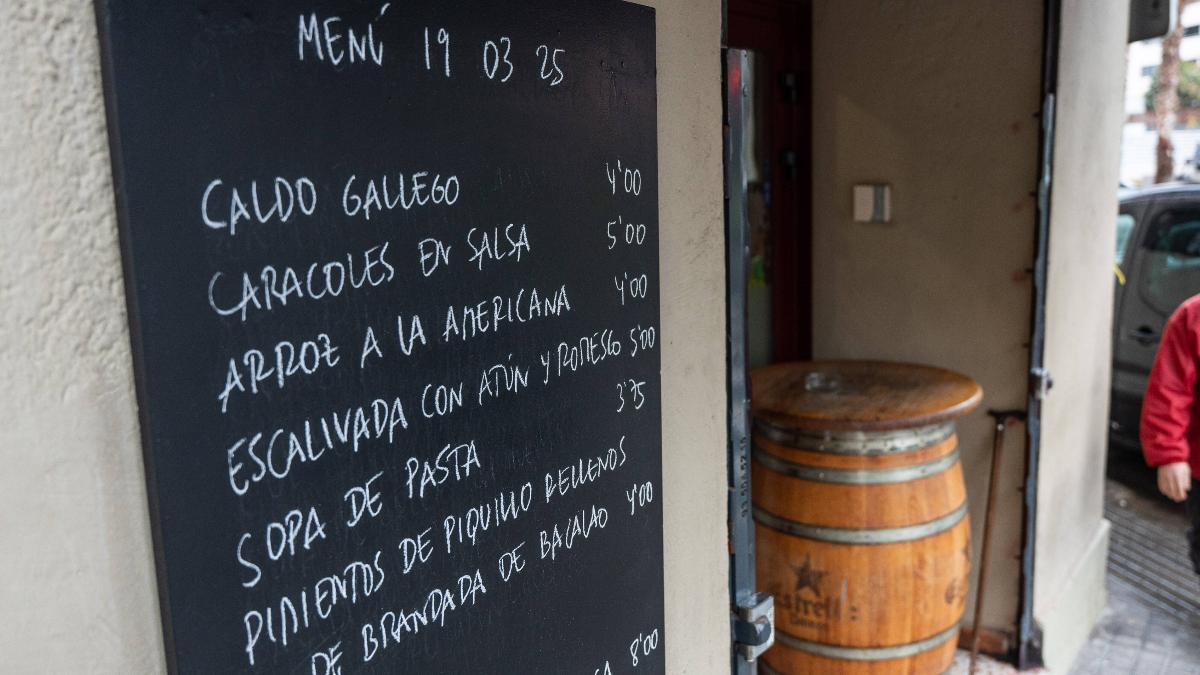 MENÚ 19 03 25
CALDO GALLEGO 4'00
CARACOLES EN SALSA 5'00
ARROZ A LA AMERICANA 4'00
ESCALIVADA CON ATÚN Y ROMESCO 5'00
SOPA DE PASTA 3'75
PIMIENTOS DE PIQUILLO RELLENOS
DE BRANDADA DE BACALAO 4'00
8'00